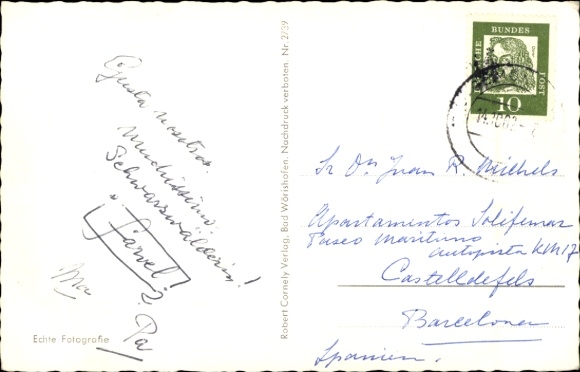 Gusta nosotros.
muchissimo.
Schwarzwälderin!
¡Carvel!?
Ma Pa
Echte Fotografie
Robert Cornely Verlag, Bad Wörishofen. Nachdruck verboten. Nr. 2739
DEUTSCHE BUNDES POST
10
Sr Dn Juan R. Michels
Apartamentos Solifemar
Paseo Maritimo
autopista KM 17
Castelldefels
Barcelona
Spanien.